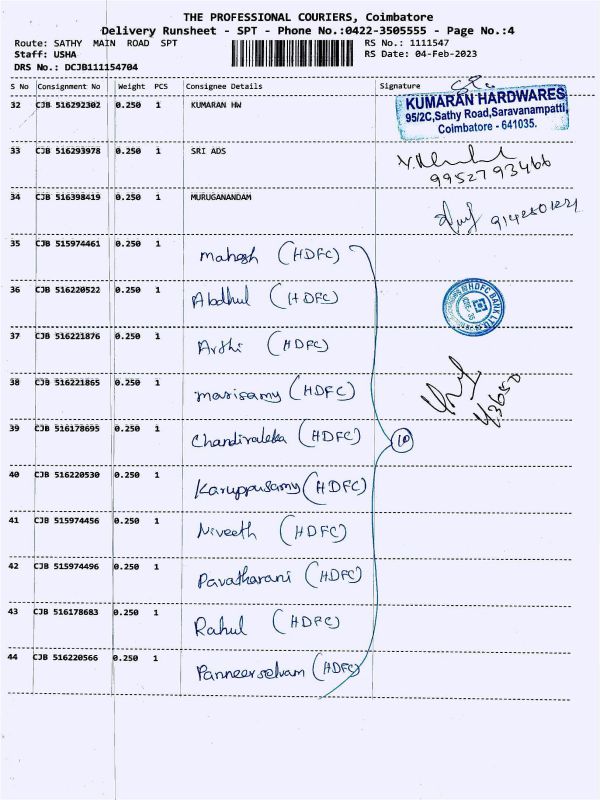 THE PROFESSIONAL COURIERS, Coimbatore
Delivery Runsheet - SPT - Phone No.:0422-3505555 - Page No.:4
Route: SATHY MAIN ROAD SPT RS No.: 1111547
Staff: USHA RS Date: 04-Feb-2023
DRS No.: DCJB111154704
S No Consignment No Weight PCS Consignee Details Signature
32 CJB 516292302 0.250 1 KUMARAN HW
KUMARAN HARDWARES
95/2C,Sathy Road,Saravanampatti,
Coimbatore - 641035.
33 CJB 516293978 0.250 1 SRI ADS
9952793466
34 CJB 516398419 0.250 1 MURUGANANDAM
35 CJB 515974461 0.250 1 Mahesh (HDFC)
36 CJB 516220522 0.250 1 Abdhul (HDFC)
HDFC BANK LTD.
37 CJB 516221876 0.250 1 Arthi (HDFC)
38 CJB 516221865 0.250 1 Marisamy (HDFC)
43650
39 CJB 516178695 0.250 1 Chandiraleka (HDFC) 10
40 CJB 516220530 0.250 1 Karuppusamy (HDFC)
41 CJB 515974456 0.250 1 Niveeth (HDFC)
42 CJB 515974496 0.250 1 Pavatharani (HDFC)
43 CJB 516178683 0.250 1 Rahul (HDFC)
44 CJB 516220566 0.250 1 Panneerselvam (HDFC)